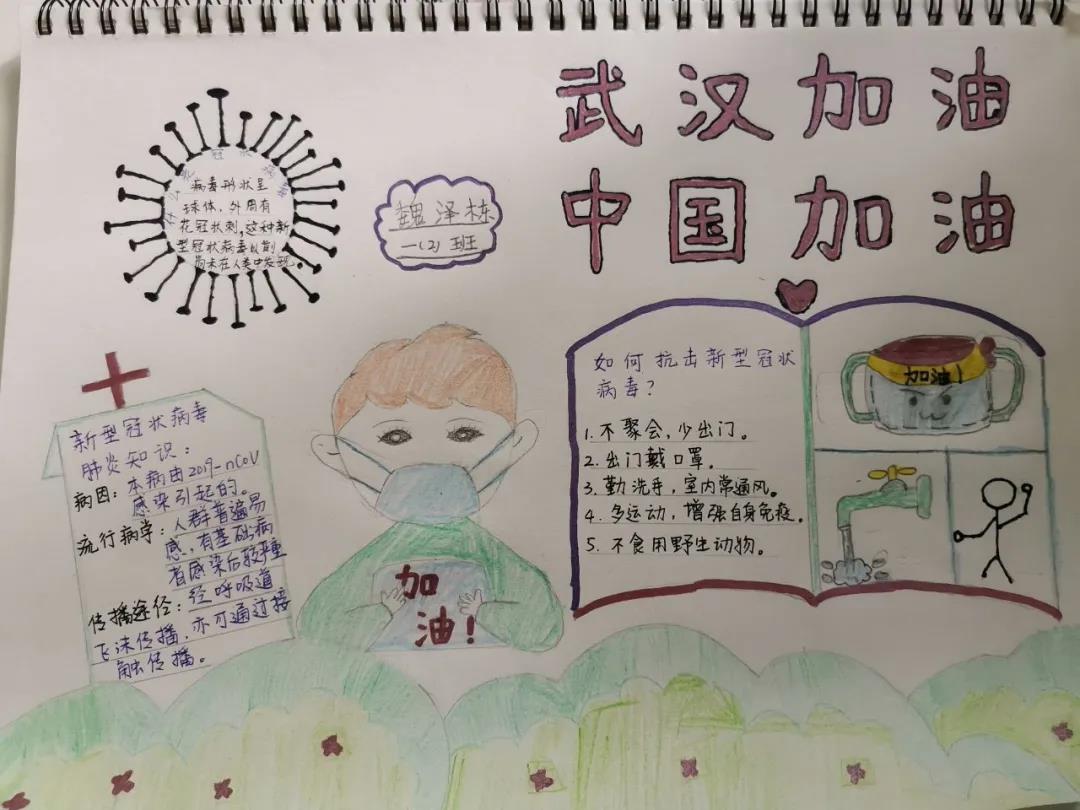 武汉加油
中国加油
新型冠状病毒
病毒形状呈
球体，外周有
花冠状刺，这种新
型冠状病毒以前
尚未在人类中发现。
魏泽栋
一(2)班
新型冠状病毒
肺炎知识：
病因：本病由2019-nCoV
感染引起的。
流行病学：人群普遍易
感，有基础病
者感染后较严重
传播途径：经呼吸道
飞沫传播，亦可通过接
触传播。
加
油！
如何抗击新型冠状
病毒？
1. 不聚会，少出门。
2. 出门戴口罩。
3. 勤洗手，室内常通风。
4. 多运动，增强自身免疫。
5. 不食用野生动物。
加油！